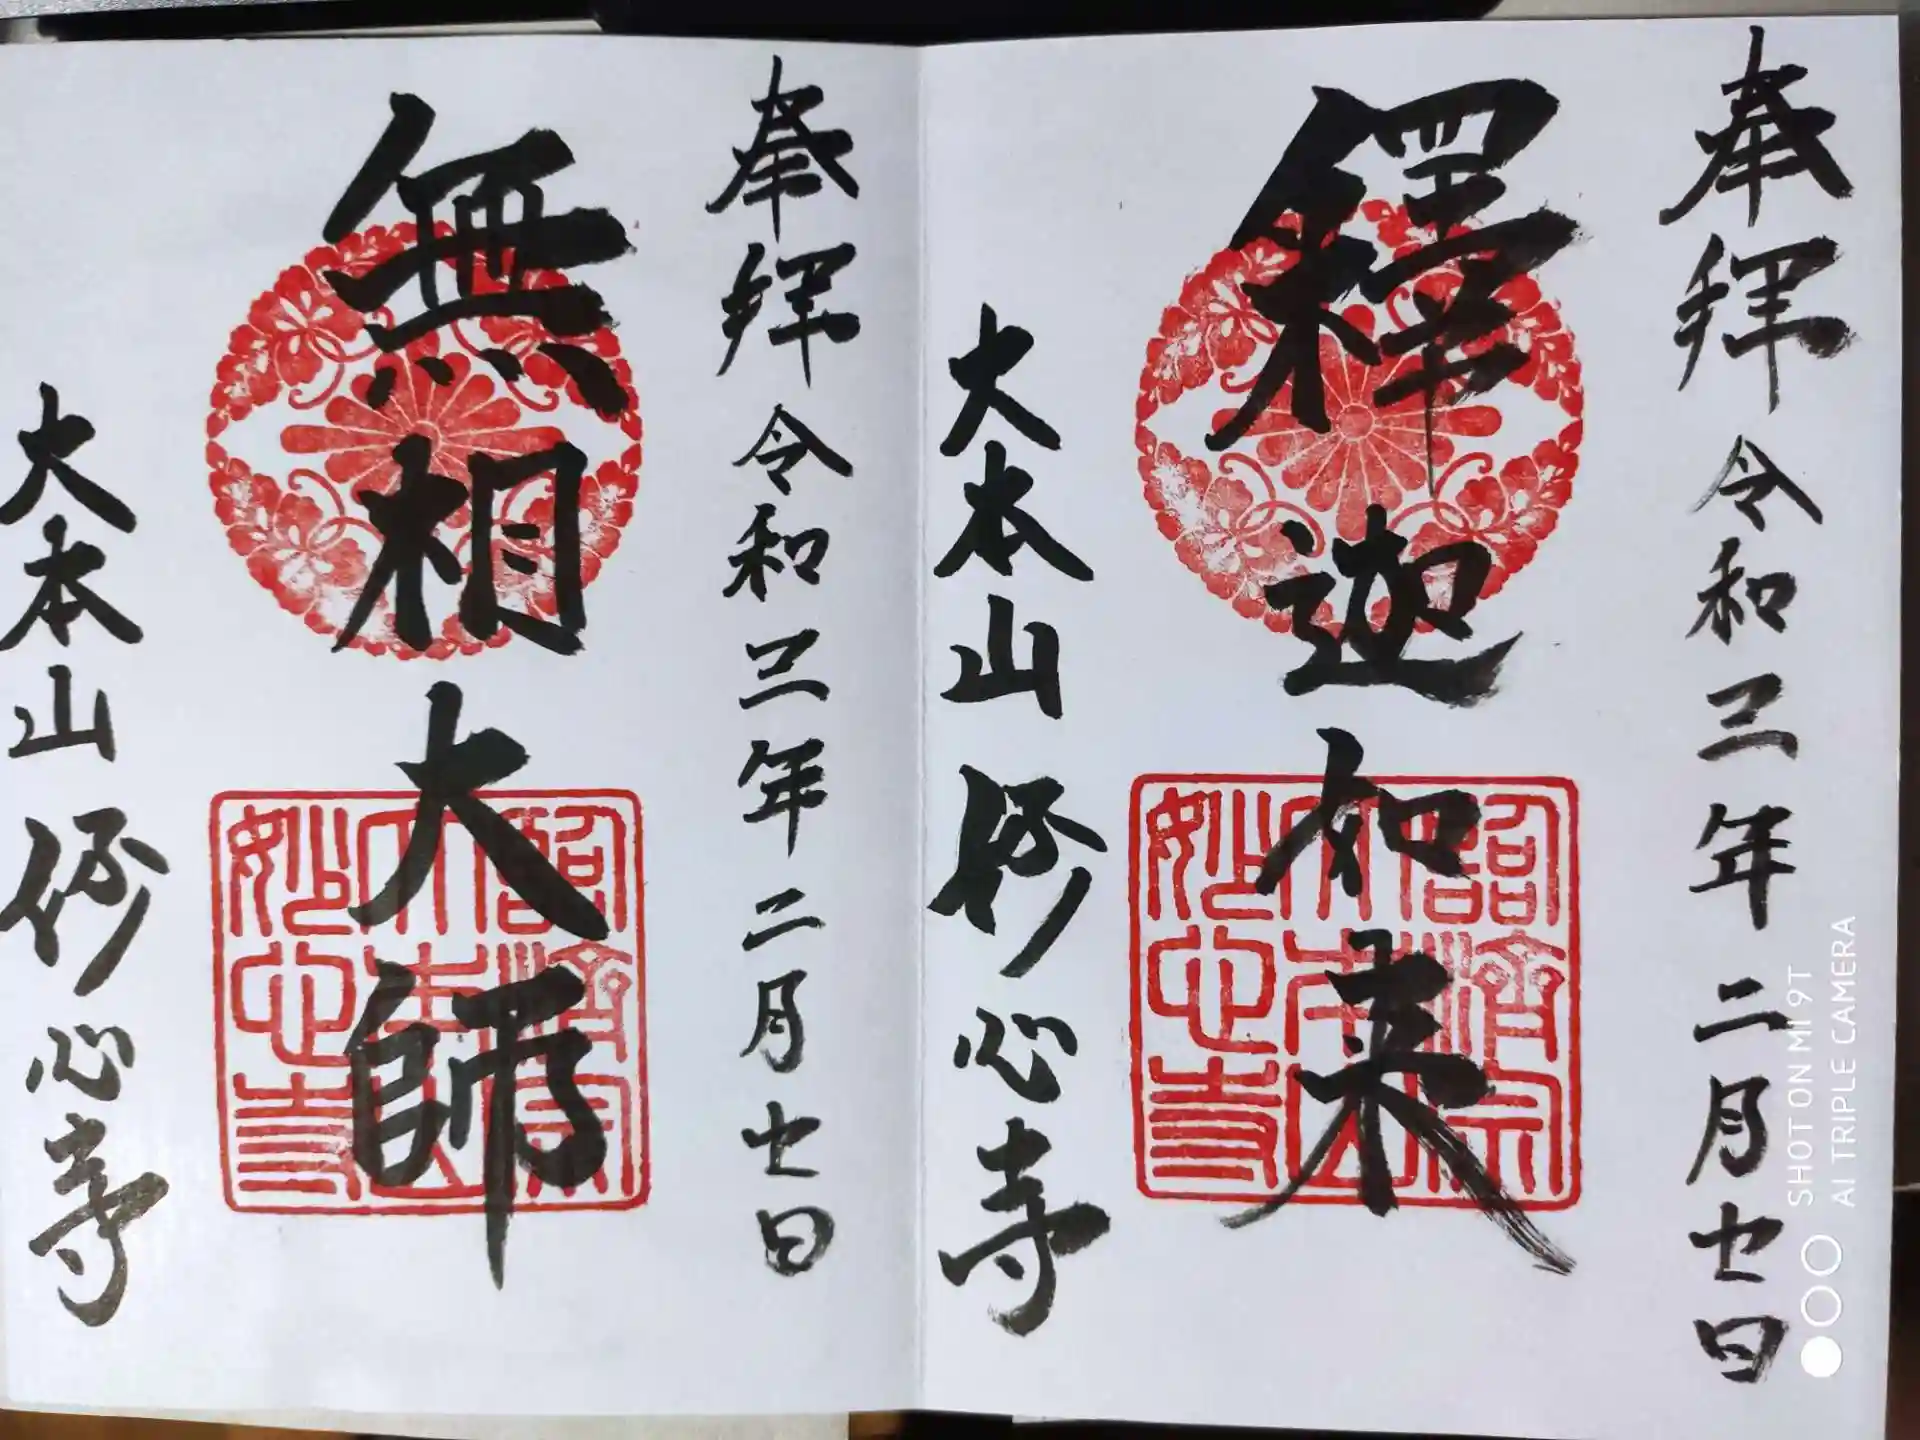 奉拜 令和三年二月七日
釋迦如来
大本山 妙心寺
臨濟宗
大本山
妙心寺
奉拜 令和三年二月七日
無相大師
大本山 妙心寺
臨濟宗
大本山
妙心寺
SHOT ON MI 9T
AI TRIPLE CAMERA